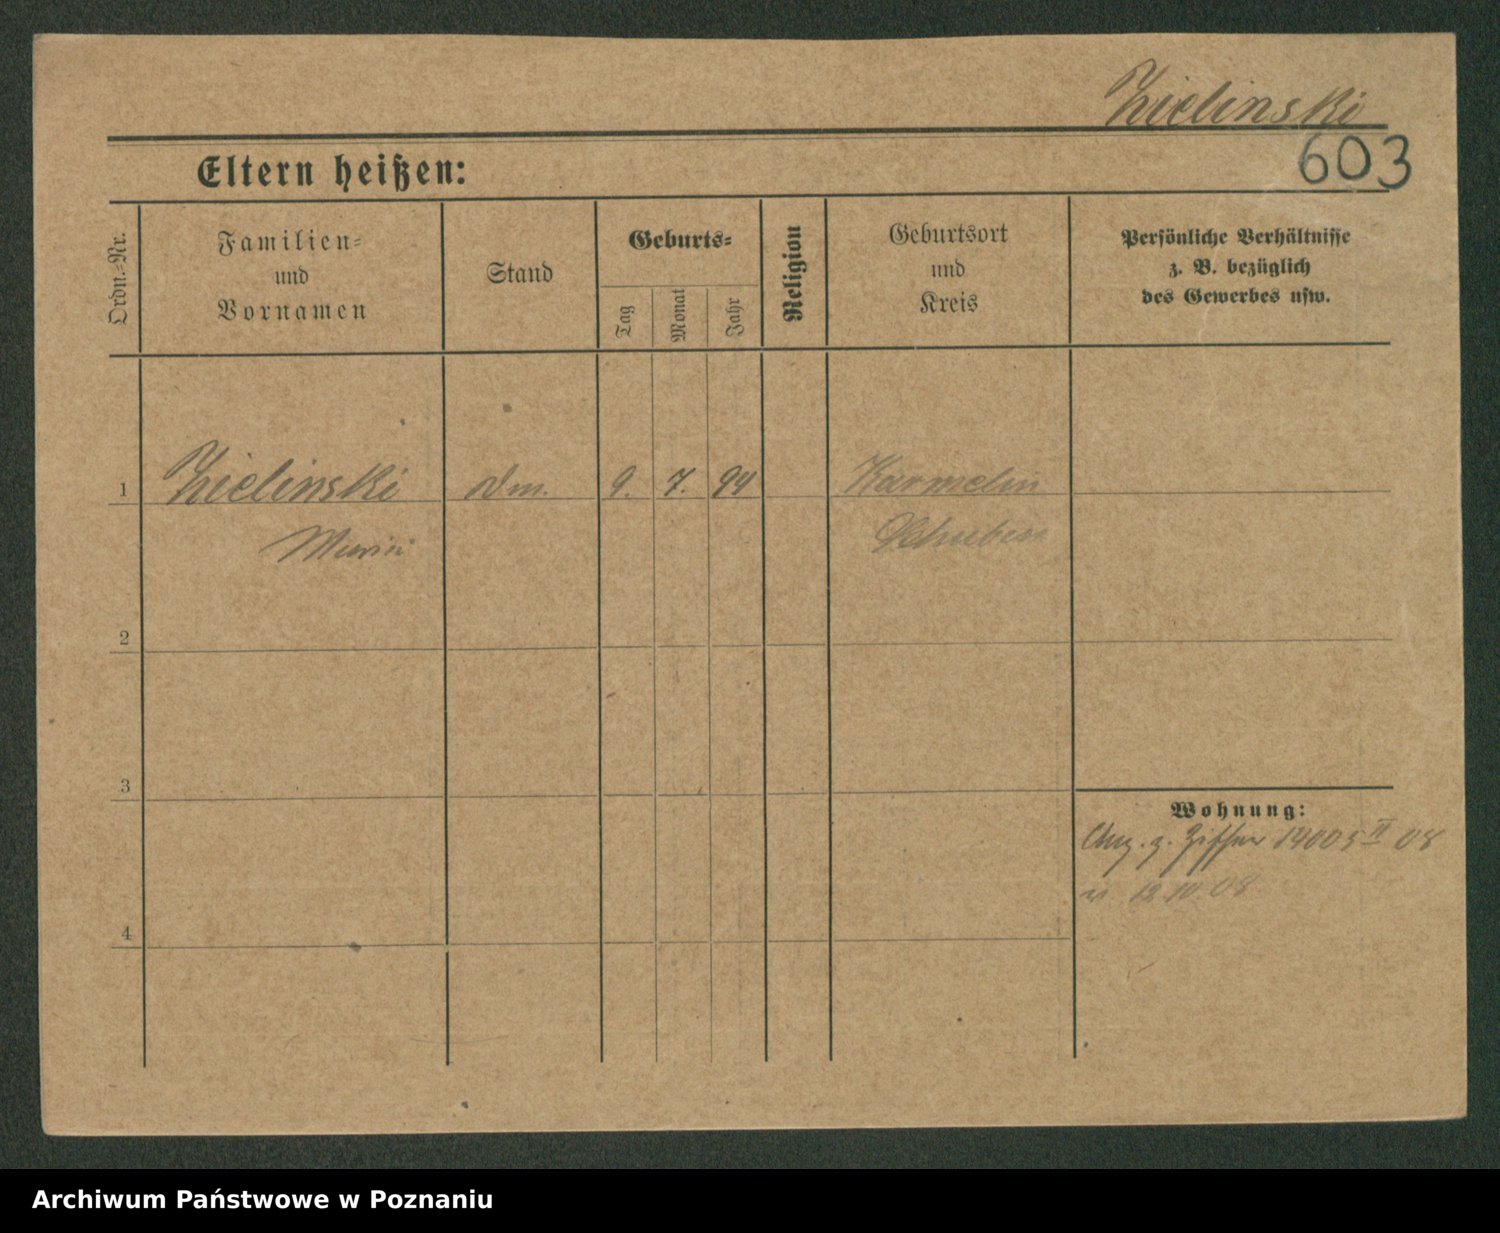 Zielinski
603
Eltern heißen:
Ordn.-Nr.
Familien-
und
Vornamen
Stand
Geburts-
Tag
Monat
Jahr
Religion
Geburtsort
und
Kreis
Persönliche Verhältnisse
z. B. bezüglich
des Gewerbes usw.
1
Zielinski
9. 7. 94
Karmelin
Schuben
2
3
Wohnung:
z. Ziffer 14005 II 08
08
4
Archiwum Państwowe w Poznaniu